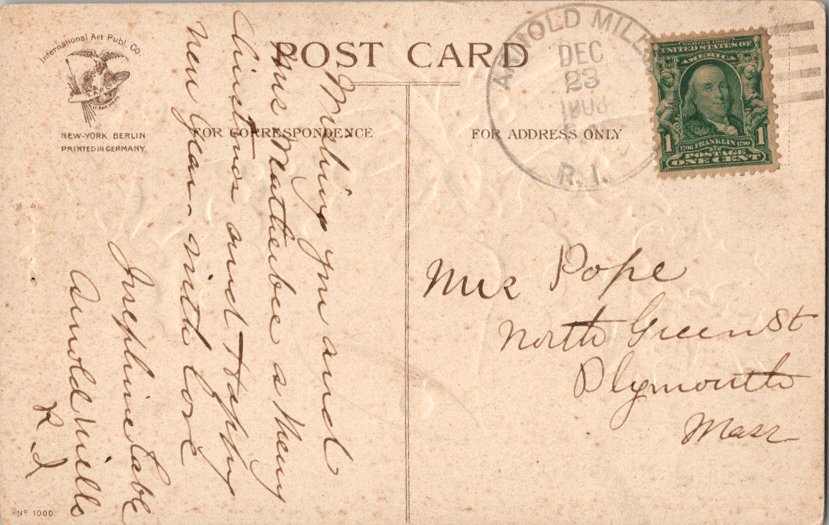 International Art Publ. Co.
NEW-YORK BERLIN
PRINTED IN GERMANY.
POST CARD
FOR CORRESPONDENCE
FOR ADDRESS ONLY
ARNOLD MILLS
DEC
23
1908
R.I.
UNITED STATES OF
AMERICA
1 1
1706 FRANKLIN 1790
POSTAGE
ONE CENT
Wishing you and
Mrs Weatherbee a Merry
Christmas and Happy
New Year. With love
Josephine
Arnold Mills
R I
Mrs Pope
North Green St
Plymouth
Mass
Nº 1000